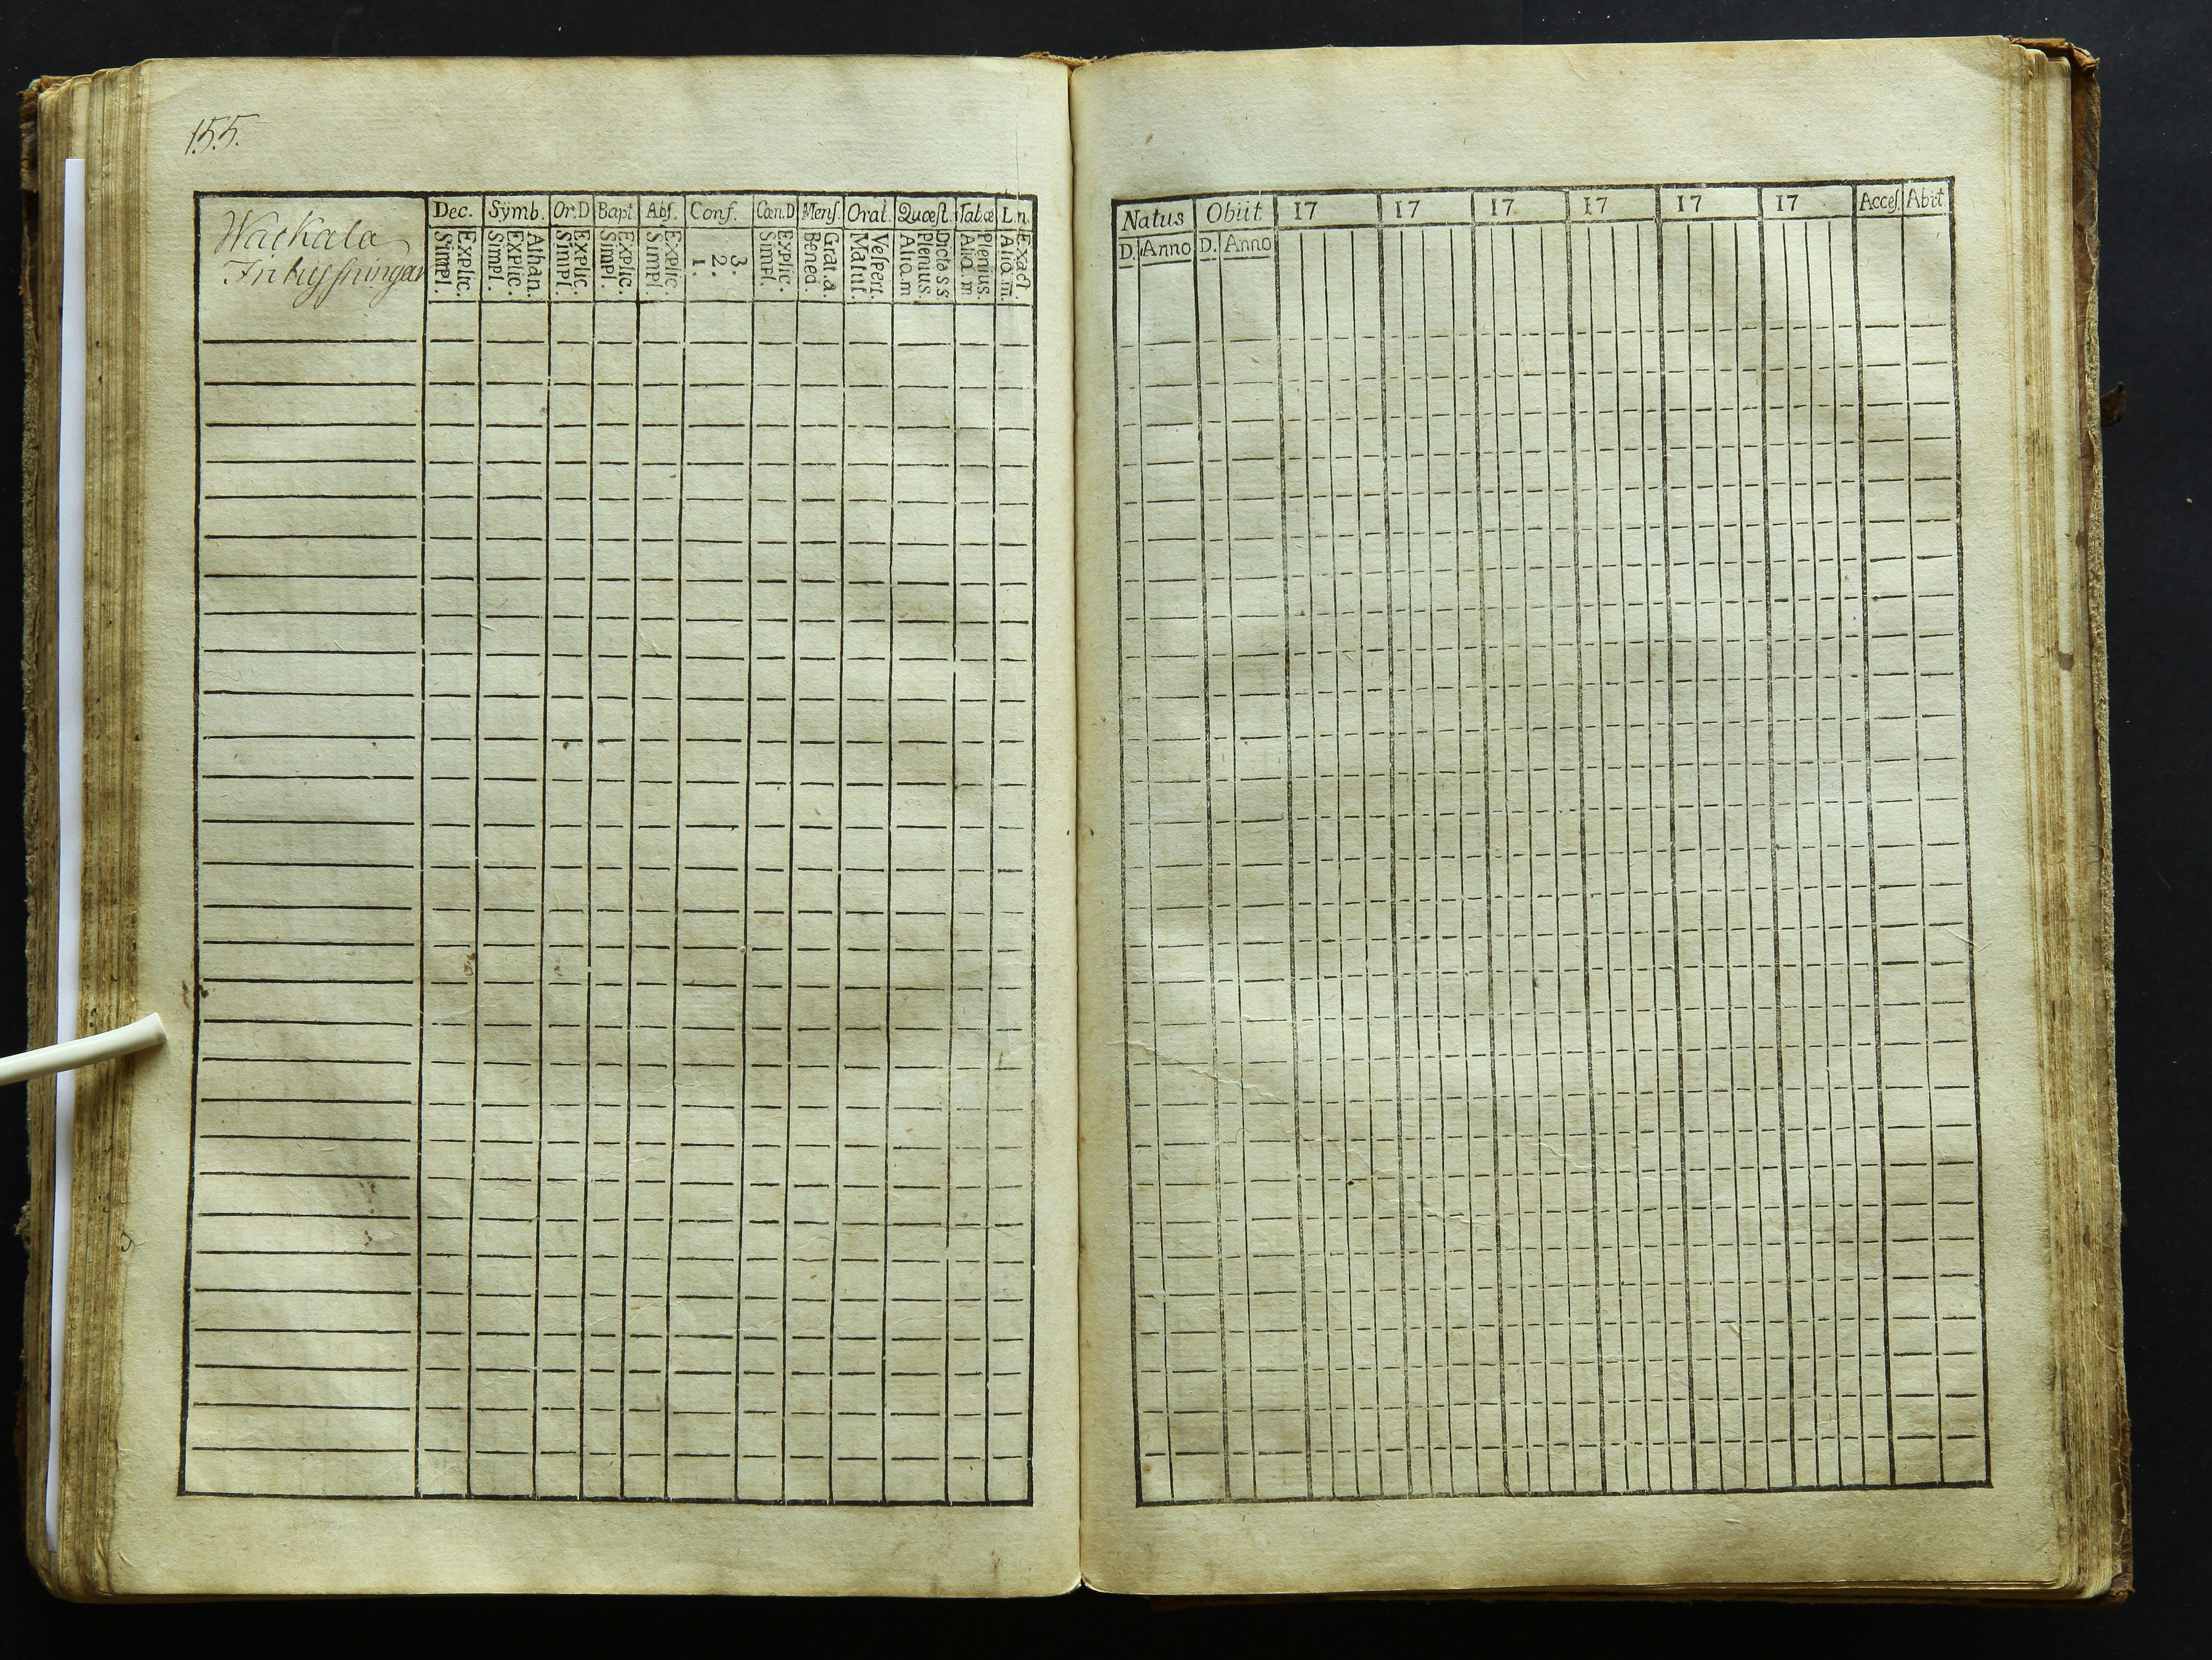 155.
Wackala
Inhysningar
Dec. Symb. Or.D Bapt. Abs. Conf. Cœn.D Mens. Orat. Quæst. Tabœ L.n.
Simpl. Explic. Simpl. Explic. Athan. Simpl. Explic. Simpl. Explic. Simpl. Explic. 1. 2. 3. Simpl. Explic. Bened. Grat.a. Matut. Vespert. Aliq.m Plenius. Dicta ss Aliq.m Plenius. Aliq.m. Exact.
Natus Obiit 17 17 17 17 17 17 Acces. Abiit
D. Anno D. Anno